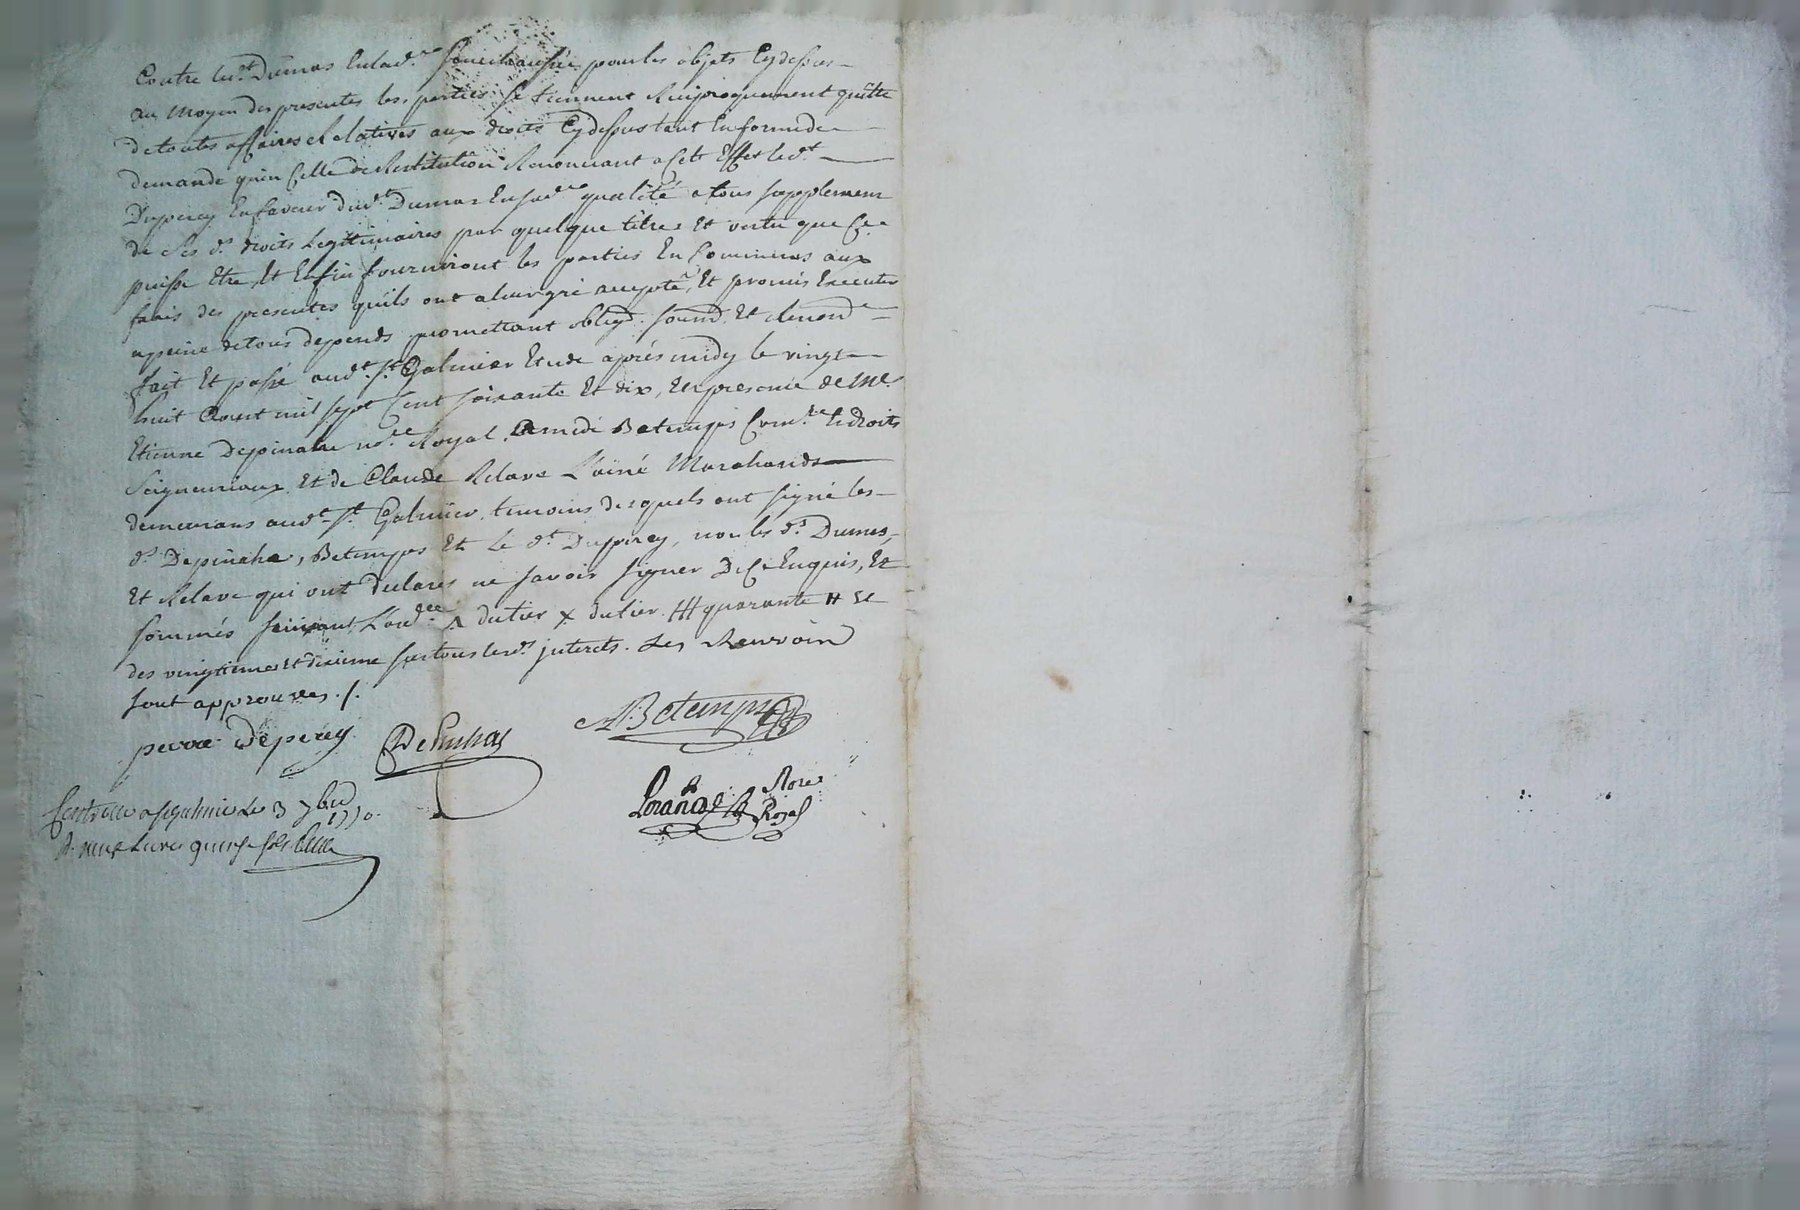 Contre led.t Dumas en lad.e Senechaussée pour les objets Cy dessus
au moyen des presentes les parties se tiennent Reciproquement quitte
de toutes affaires Relatives aux droits Cy dessus tant En forme de
demande qu'en Celle de Restitution Renonciant a Cet Effet led.t
Duperey En faveur dud.t Dumas En sad.e qualité a tous supplement
de ses d.s droits Legitimaires par quelque titres Et vertu que Ce
puisse Etre, Et Enfin fourniront les parties En Commun aux
frais des presentes qu'ils ont a leur gré accepté, Et promis Executer
a peine de tous depends promettant oblig.t soum.t Et Renond.t
fait Et passé aud.t S.t Galmier Etude après midy le vingt
huit aoust mil sept Cent soixante Et dix, En presence de Me
Etienne Depinahe no.re Royal, Amedé Betemps Com.re Es droits
Seigneuriaux, Et de Claude Relave L'ainé Marchands
demeurans aud.t S.t Galmier, temoins desquels ont signé les
d.s Depinhe, Betemps Et Le d.t Duperey, non les d.s Dumas,
Et Relave qui ont declarés ne savoir signer De Ce Enquis, Et
sommés suivant L'ord.ce
dutier x dutier quarante
des vingtiemes et dixieme sur tous lesd.s interets. Les Renvoix
sont approuves ./.
pierre Deperey
ABetemps
Royal
3 7bre 1770.
Livres